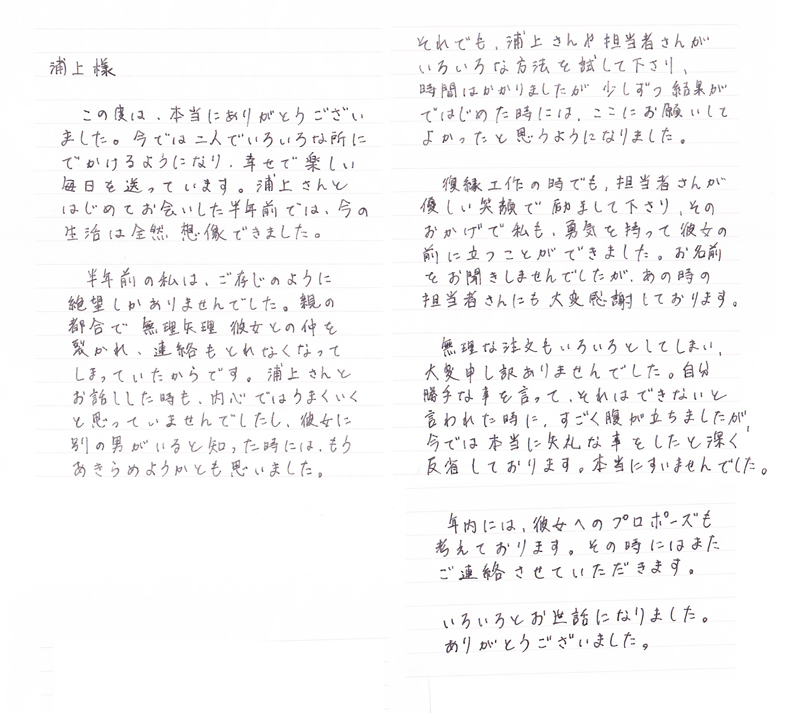 浦上様
この度は、本当にありがとうござい
ました。今では二人でいろいろな所に
でかけるようになり、幸せで楽しい
毎日を送っています。浦上さんと
はじめてお会いした半年前では、今の
生活は全然想像できました。
半年前の私は、ご存じのように
絶望しかありませんでした。親の
都合で無理矢理彼女との仲を
裂かれ、連絡もとれなくなって
しまっていたからです。浦上さんと
お話しした時も、内心ではうまくいく
と思っていませんでしたし、彼女に
別の男がいると知った時には、もう
あきらめようかとも思いました。
それでも、浦上さんや担当者さんが
いろいろな方法を試して下さり、
時間はかかりましたが少しずつ結果が
ではじめた時には、ここにお願いして
よかったと思うようになりました。
復縁工作の時でも、担当者さんが
優しい笑顔で励まして下さり、その
おかげで私も、勇気を持って彼女の
前に立つことができました。お名前
をお聞きしませんでしたが、あの時の
担当者さんにも大変感謝しております。
無理な注文もいろいろとしてしまい、
大変申し訳ありませんでした。自分
勝手な事を言って、それはできないと
言われた時に、すごく腹が立ちましたが、
今では本当に失礼な事をしたと深く
反省しております。本当にすいませんでした。
年内には、彼女へのプロポーズも
考えております。その時にはまた
ご連絡させていただきます。
いろいろとお世話になりました。
ありがとうございました。